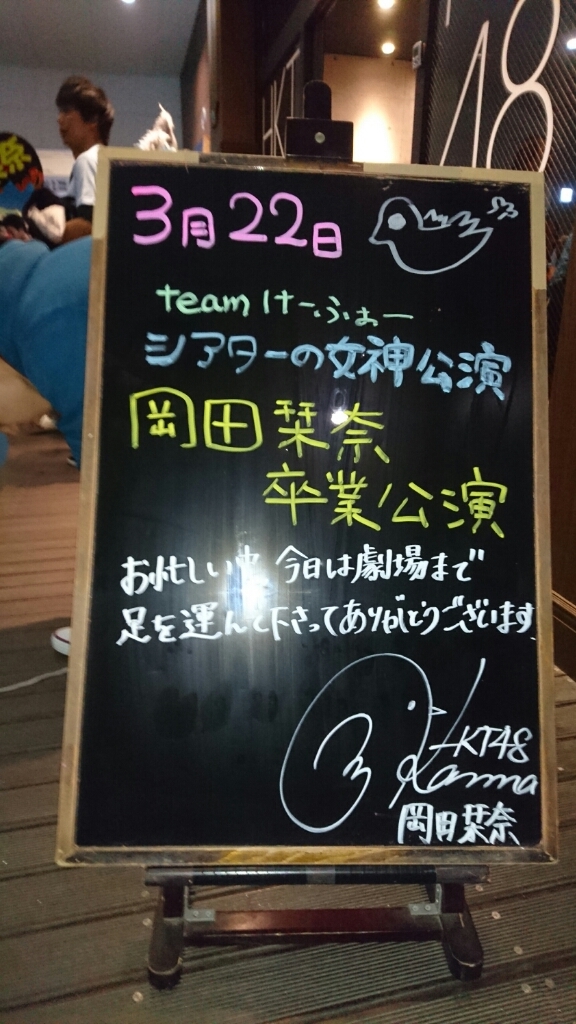 HKT
48
3月22日
team けーふぉー
シアターの女神公演
岡田栞奈
卒業公演
お忙しい中 今日は劇場まで
足を運んで下さってありがとうございます
HKT48
Kanna
岡田栞奈